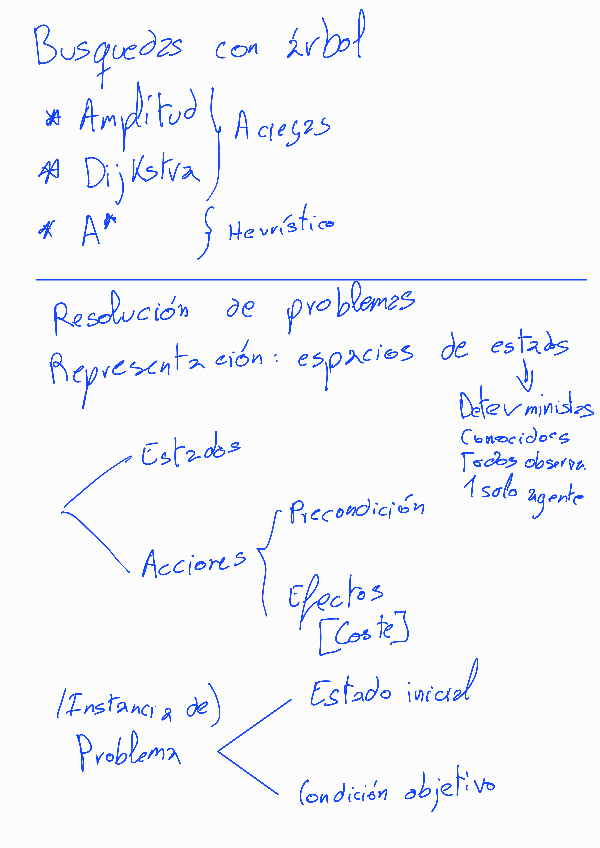 Busquedas con árbol
* Amplitud
A ciegas
* Dijkstra
* A*
Heurístico
Resolución de problemas
Representación: espacios de estados
Deterministas
Conocidos
Todos observa
1 solo agente
Estados
Acciones
Precondición
Efectos
[Coste]
(Instancia de)
Problema
Estado inicial
Condición objetivo